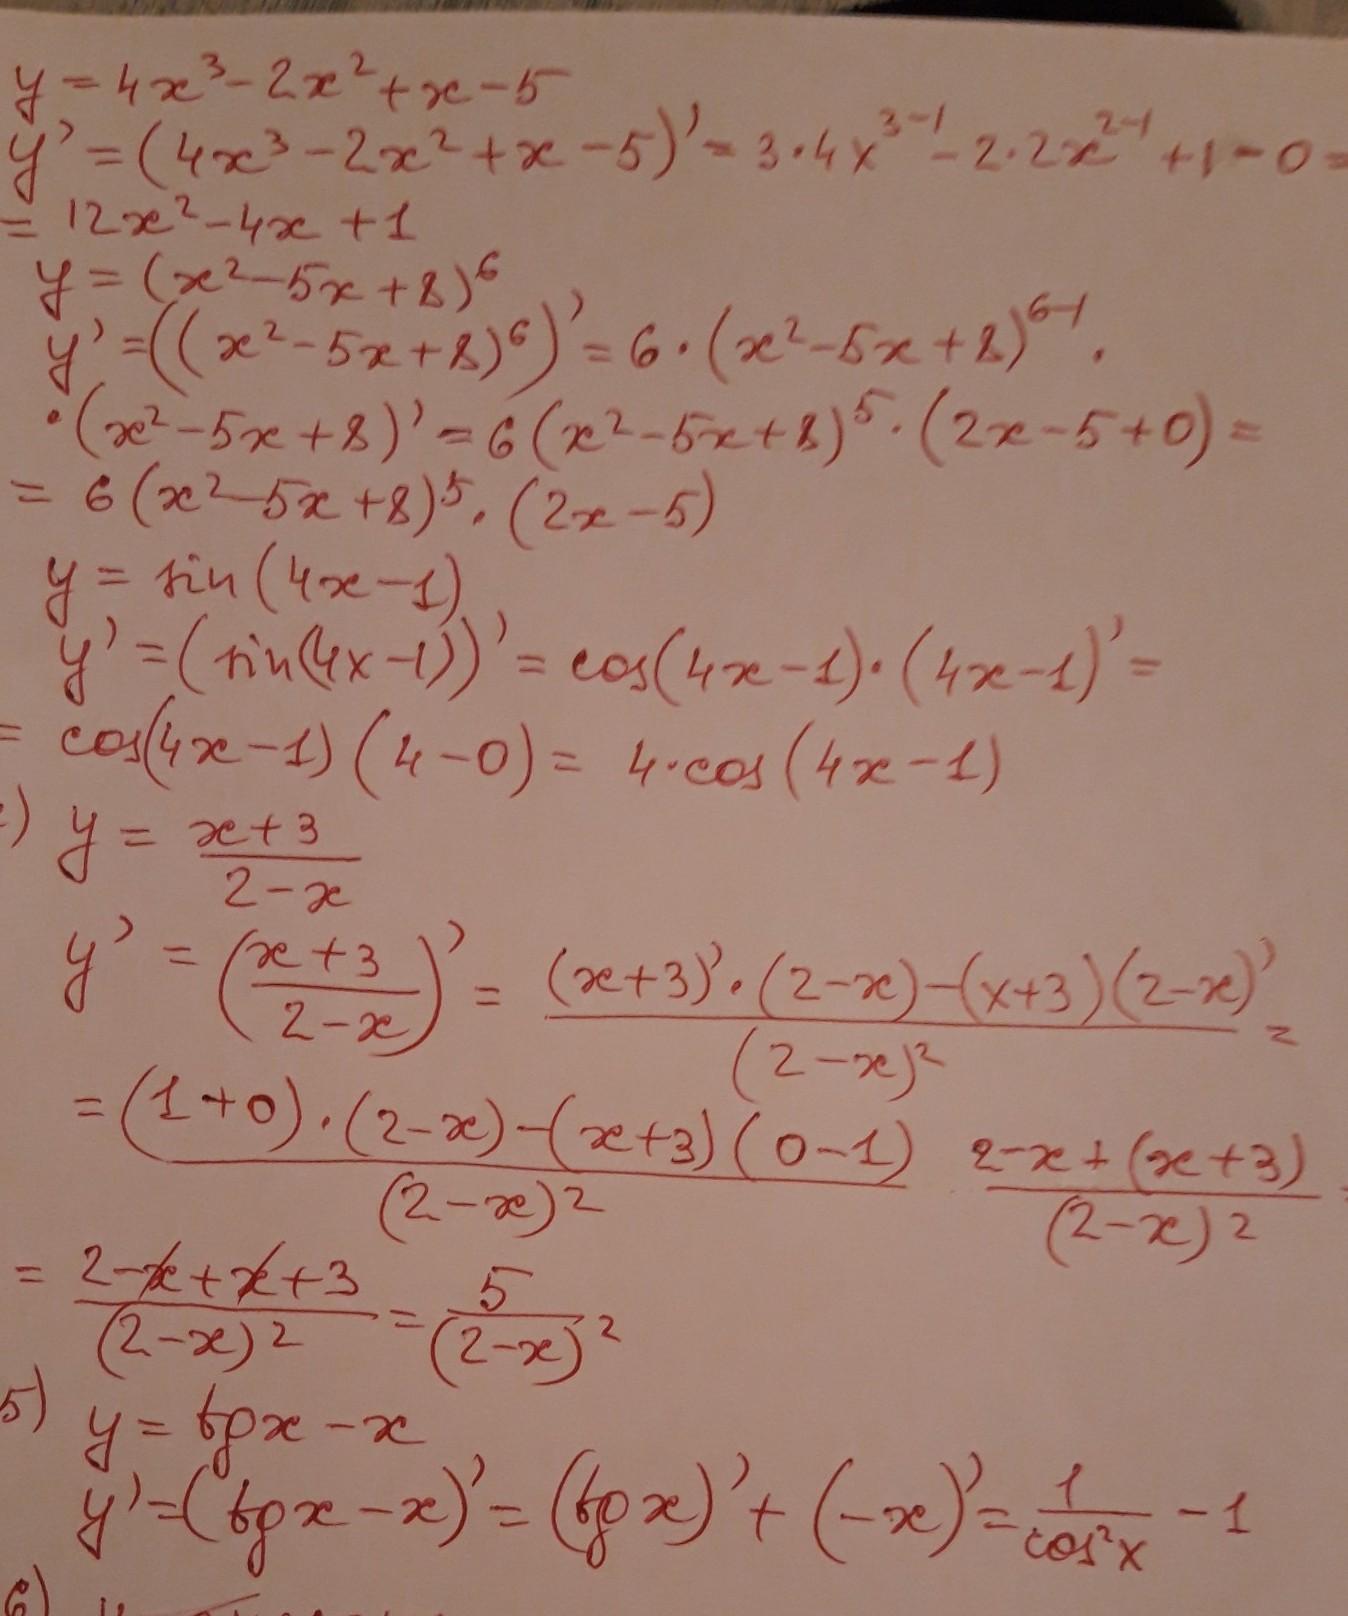 y = 4x³ - 2x² + x - 5
y' = (4x³ - 2x² + x - 5)' = 3·4x³⁻¹ - 2·2x²⁻¹ + 1 - 0 =
= 12x² - 4x + 1
y = (x² - 5x + 8)⁶
y' = ((x² - 5x + 8)⁶)' = 6·(x² - 5x + 8)⁶⁻¹ ·
·(x² - 5x + 8)' = 6(x² - 5x + 8)⁵·(2x - 5 + 0) =
= 6(x² - 5x + 8)⁵·(2x - 5)
y = sin(4x - 1)
y' = (sin(4x - 1))' = cos(4x - 1)·(4x - 1)' =
= cos(4x - 1)(4 - 0) = 4·cos(4x - 1)
) y = (x + 3)/(2 - x)
y' = ((x + 3)/(2 - x))' = ((x + 3)'·(2 - x) - (x + 3)(2 - x)')/(2 - x)² =
= ((1 + 0)·(2 - x) - (x + 3)(0 - 1))/(2 - x)² (2 - x + (x + 3))/(2 - x)² =
= (2 - x + x + 3)/(2 - x)² = 5/(2 - x)²
5) y = tgx - x
y' = (tgx - x)' = (tgx)' + (-x)' = 1/cos²x - 1
6)